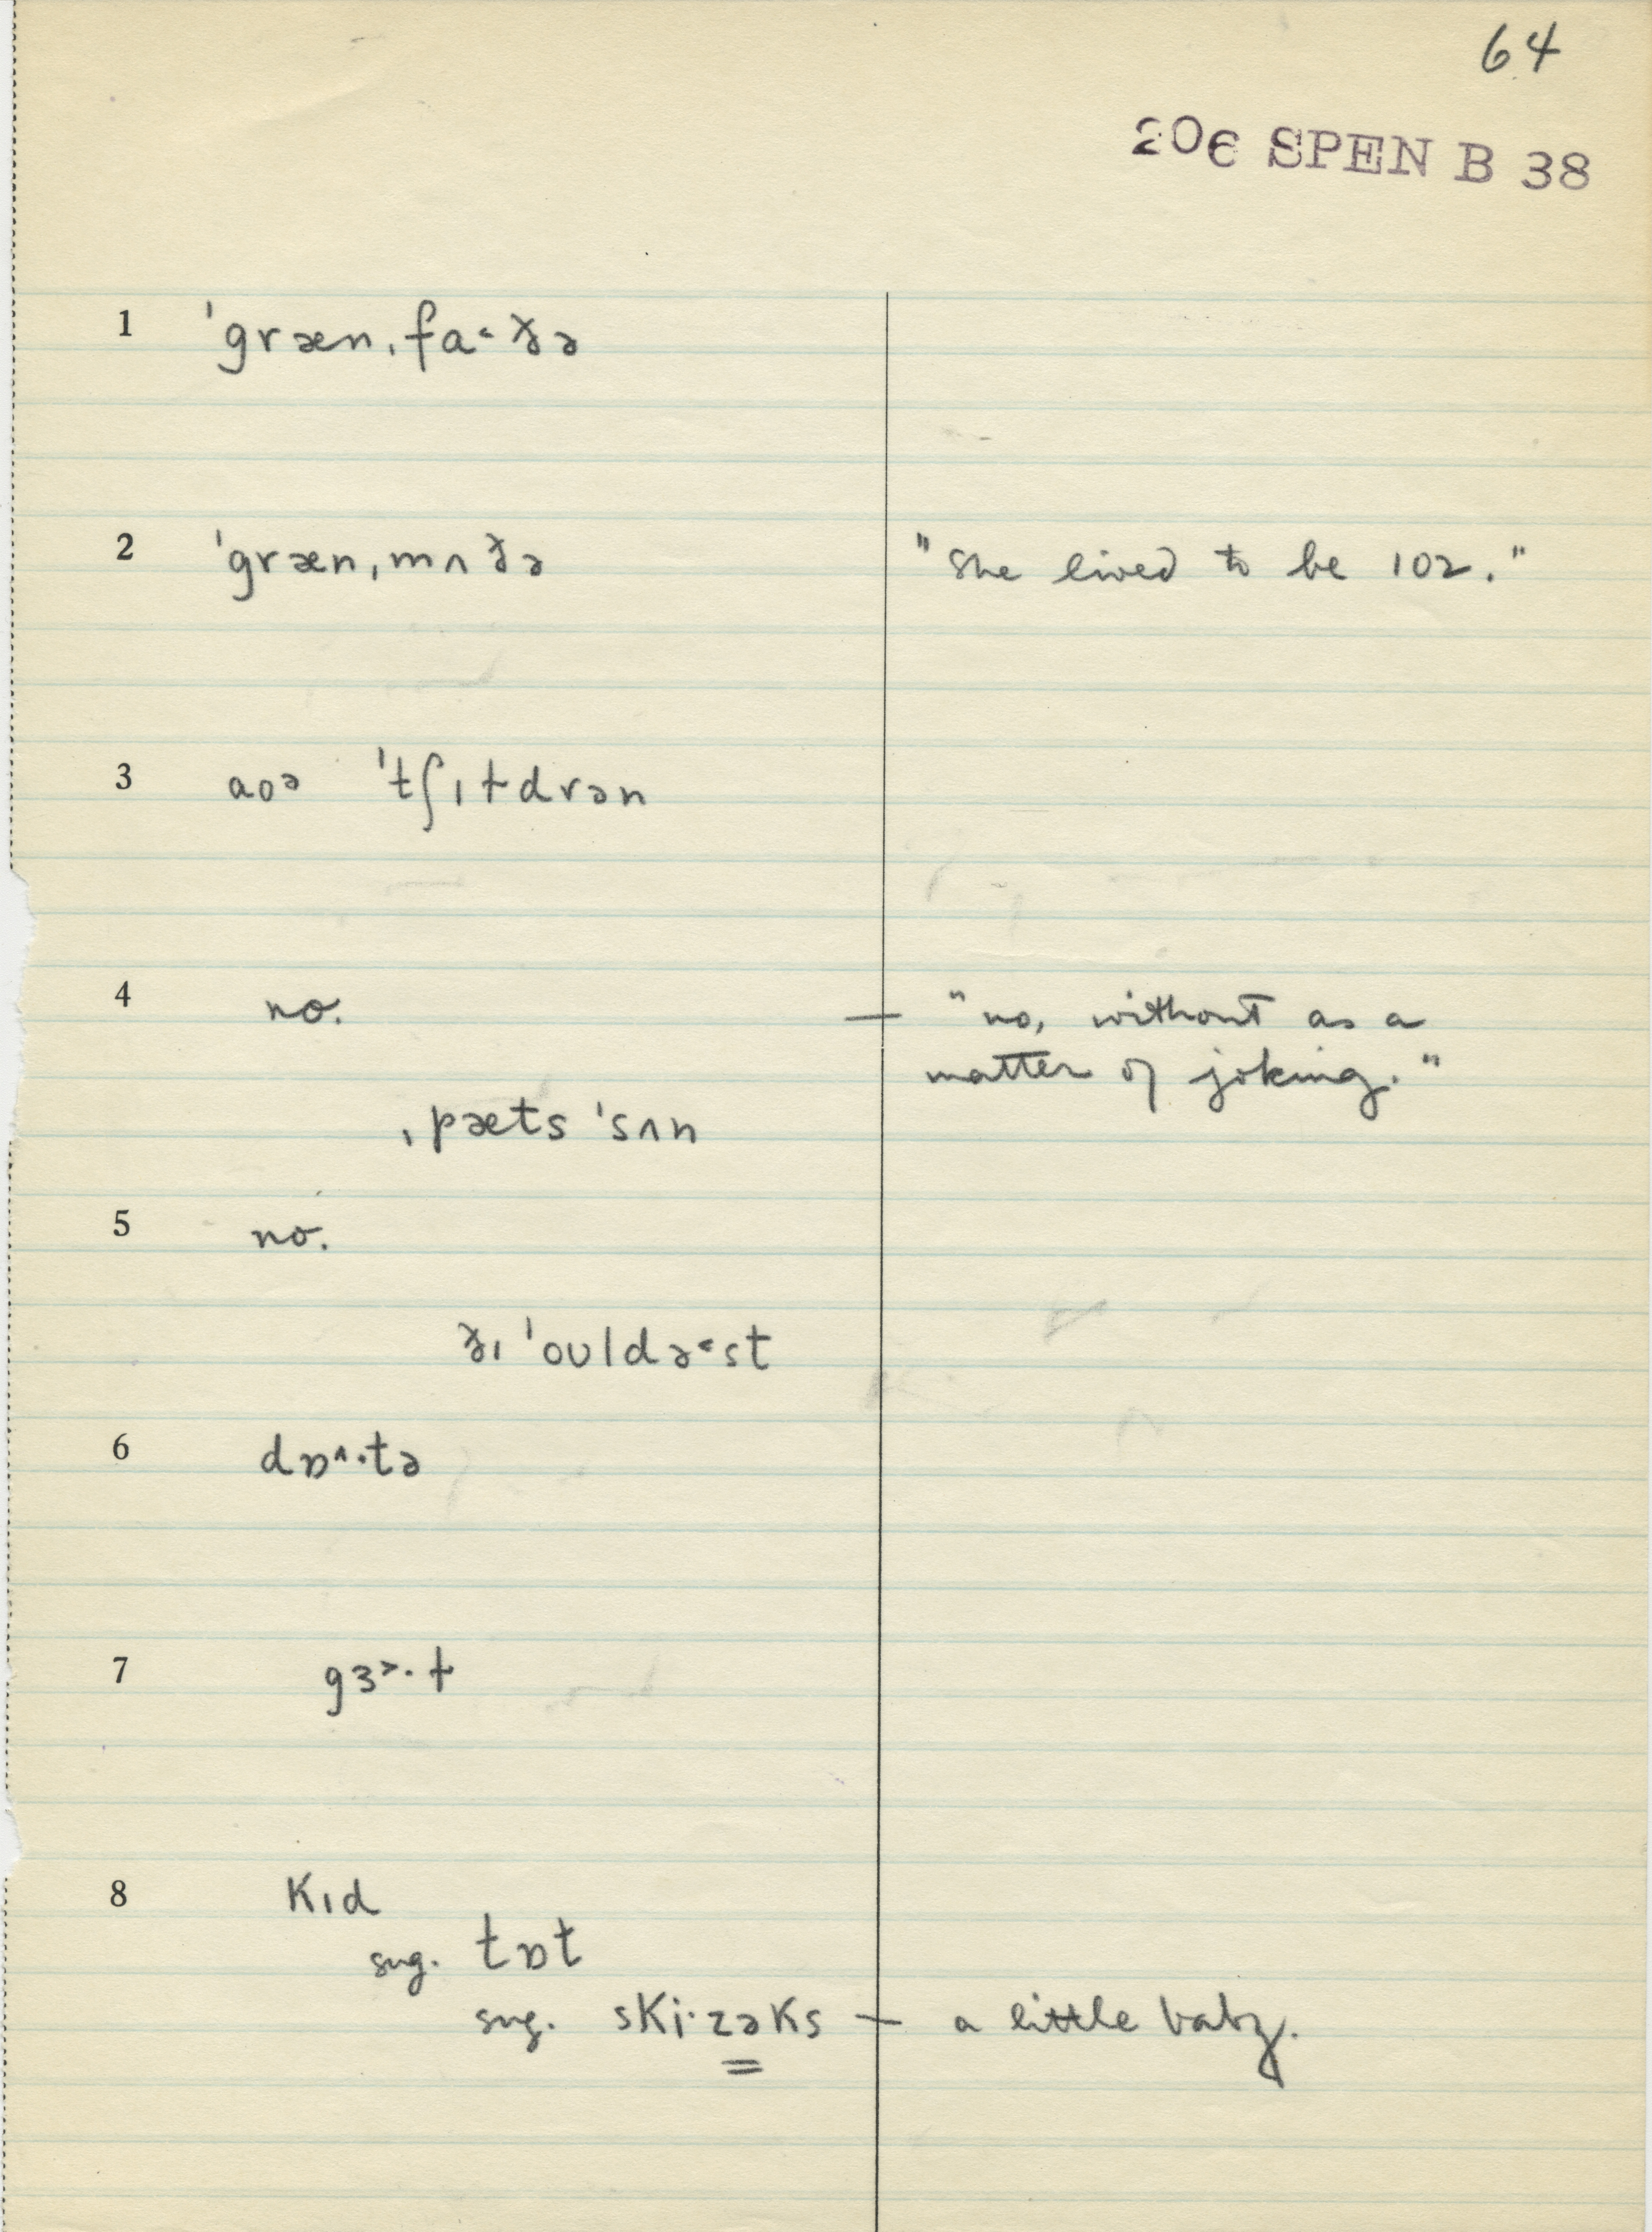 64
206 SPEN B 38
1 ˈgræn,fa˂ðə
2 ˈgræn,mʌðə "She lived to be 102."
3 aoə ˈtʃɪɫdrən
4 no. — "no, without as a
matter of joking."
ˌpæts ˈsʌn
5 no.
ðɪ ˈoʊldə˂st
6 dɒ^·tə
7 gɜ˃·ɫ
8 kɪd
sug. tɒt
sug. ski·zəks — a little baby.